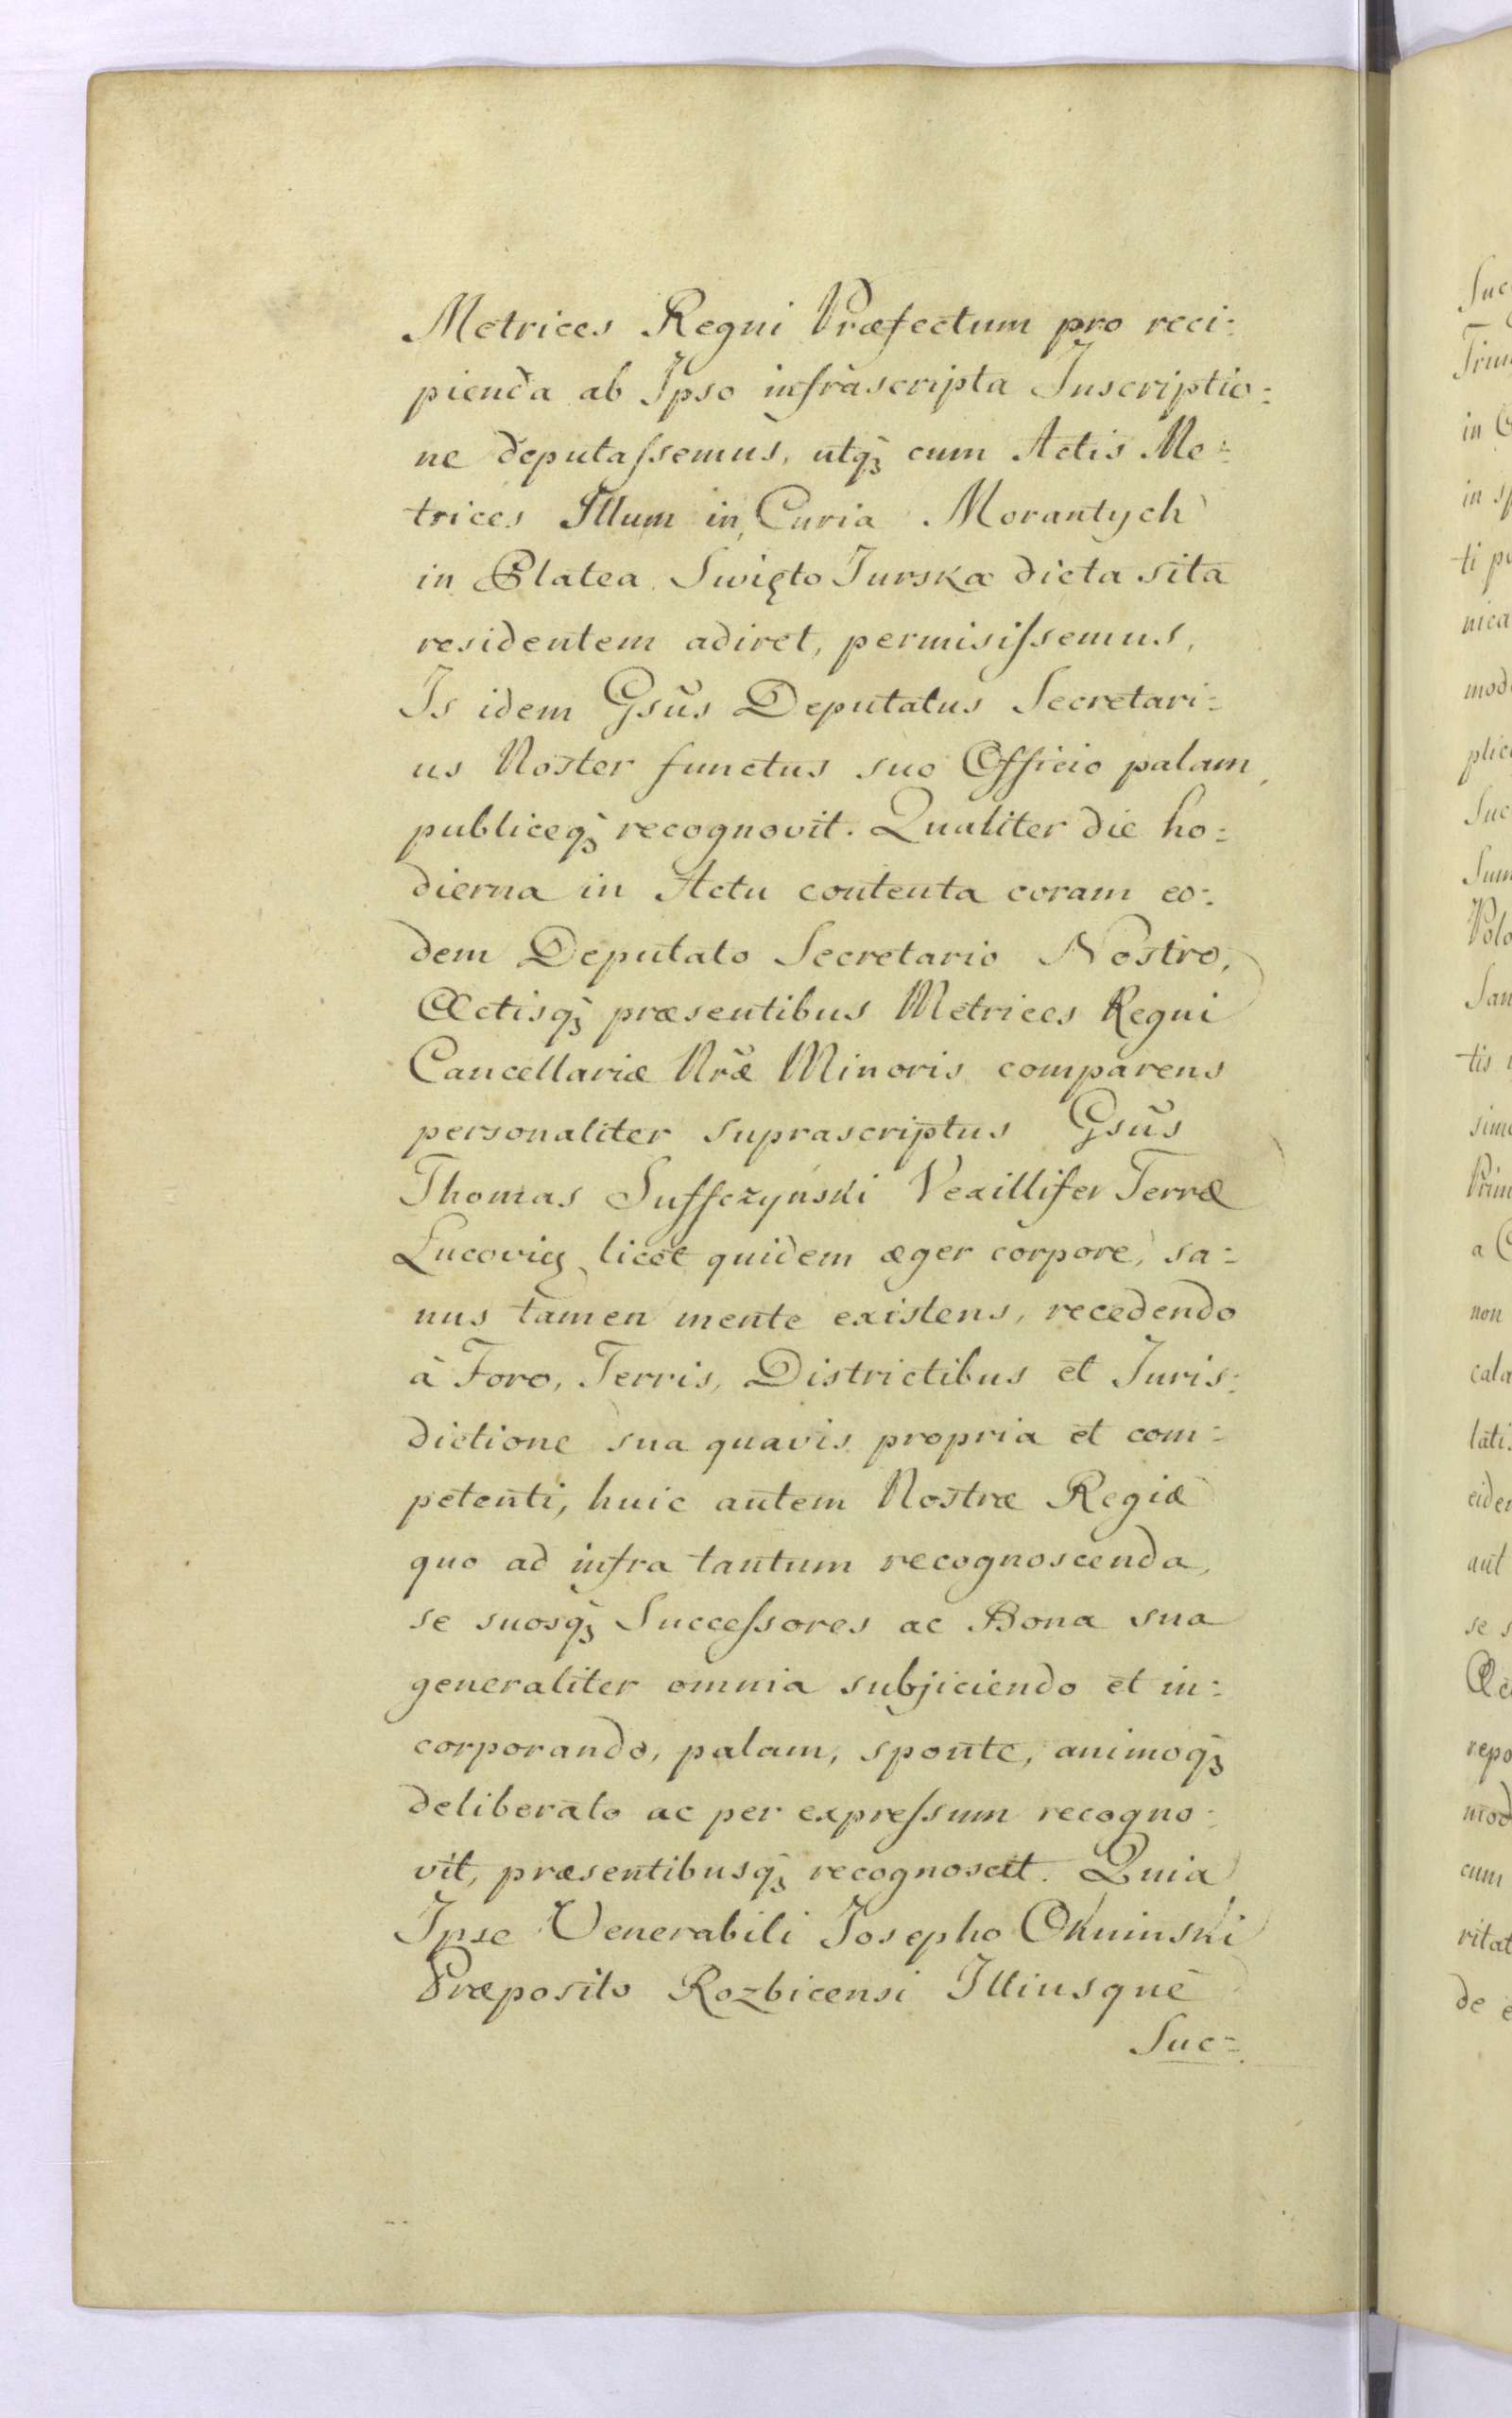 Metrices Regni Præfectum pro reci=
pienda ab Ipso infrascripta Inscriptio=
ne deputaſsemus, utq̀ȝ cum Actis Me=
trices Illum in Curia Morantych
in Platea Swięto Jurska dicta sita
residentem adiret, permisiſsemus,
Is idem Gsũs Deputatus Secretari=
us Noster functus suo Officio palam,
publiceq̀ȝ recognovit. Qualiter die ho=
dierna in Actu contenta coram eo=
dem Deputato Secretario Nostro,
Actisq̀ȝ præsentibus Metrices Regni
Cancellariæ Nræ̃ Minoris comparens
personaliter suprascriptus Gsũs
Thomas Suffczyński Vexillifer Terræ
Lucovię licet quidem æger corpore, sa=
nus tamen mente existens, recedendo
à Foro, Terris, Districtibus et Juris=
dictione sua quavis propria et com=
petenti, huic autem Nostræ Regiæ
quo ad infra tantum recognoscenda,
se suosq̀ȝ Succeſsores ac Bona sua
generaliter omnia subjiciendo et in=
corporando, palam, sponte, animoq̀ȝ
deliberato ac per expreſsum recogno=
vit, præsentibusq̀ȝ recognoscit. Quia
Ipse Venerabili Josepho Okninski
Præposito Rozbicensi Illiusque
Suc=
Suc
in
in
ti
nica
Suc
tis
a
non
cala
lati
aut
se
repo
cum
ritat
de